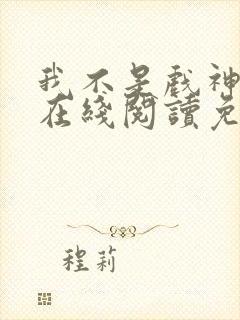 我不是戲神
在綫閱讀免
程莉